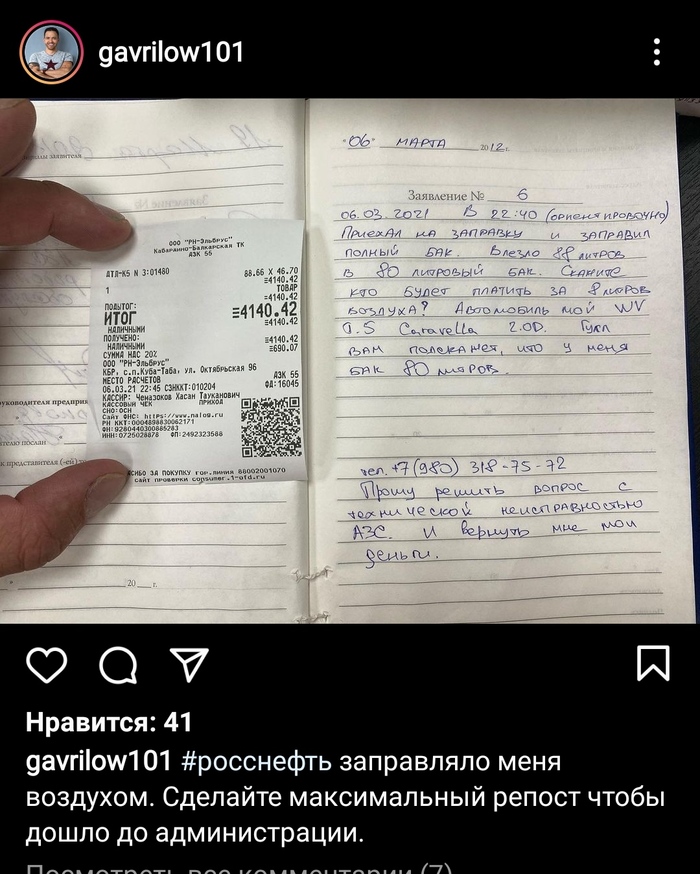 gavrilow101
"06" МАРТА 2012г.
Заявление № 6
06.03.2021 В 22:40 (ориентировочно)
Приехал на заправку и заправил
полный бак. Влезло 88 литров
в 80 литровый бак. Скажите
кто будет платить за 8 литров
воздуха? Автомобиль мой WV
Caravella 2.0D. Гугл
вам подскажет, что у меня
бак 80 литров.
тел. +7(980) 318-75-72
Прошу решить вопрос с
технической неисправностью
АЗС. И вернуть мне мои
деньги.
ООО "РН-Эльбрус"
Кабардино-Балкарская ТК
АЗК 55
АТЛ-К5 N 3:01480 88.66 X 46.70
≡4140.42
1 ТОВАР
≡4140.42
ПОДЫТОГ: ≡4140.42
ИТОГ ≡4140.42
НАЛИЧНЫМИ ≡4140.42
ПОЛУЧЕНО:
НАЛИЧНЫМИ ≡4140.42
СУММА НДС 20% ≡690.07
ООО "РН-Эльбрус"
КБР, с.п.Куба-Таба, ул. Октябрьская 96
МЕСТО РАСЧЕТОВ АЗК 55
06.03.21 22:45 СЗНККТ:010204 ФД:16045
КАССИР: Ченазоков Хасан Тауканович
КАССОВЫЙ ЧЕК ПРИХОД
СНО:ОСН
Сайт ФНС: https://www.nalog.ru
РН ККТ:0004898830062171
ФН:9280440300885283
ИНН:0725028878 ФП:2492323588
ЗА ПОКУПКУ гор.линия 88002001070
сайт проверки consumer.1-ofd.ru
заявителя
руководителя
телю послан
представителя
20 г.
Нравится: 41
gavrilow101 #росснефть заправляло меня
воздухом. Сделайте максимальный репост чтобы
дошло до администрации.
Посмотреть все комментарии (7)